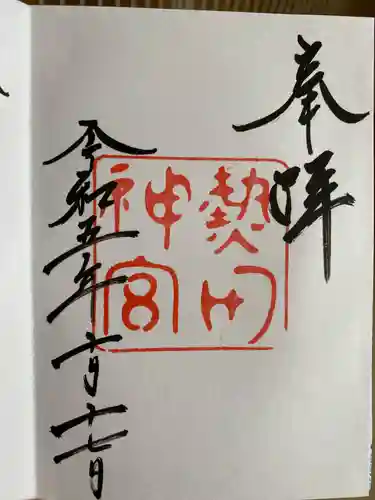 奉拝
熱田
神宮
令和五年十月十七日